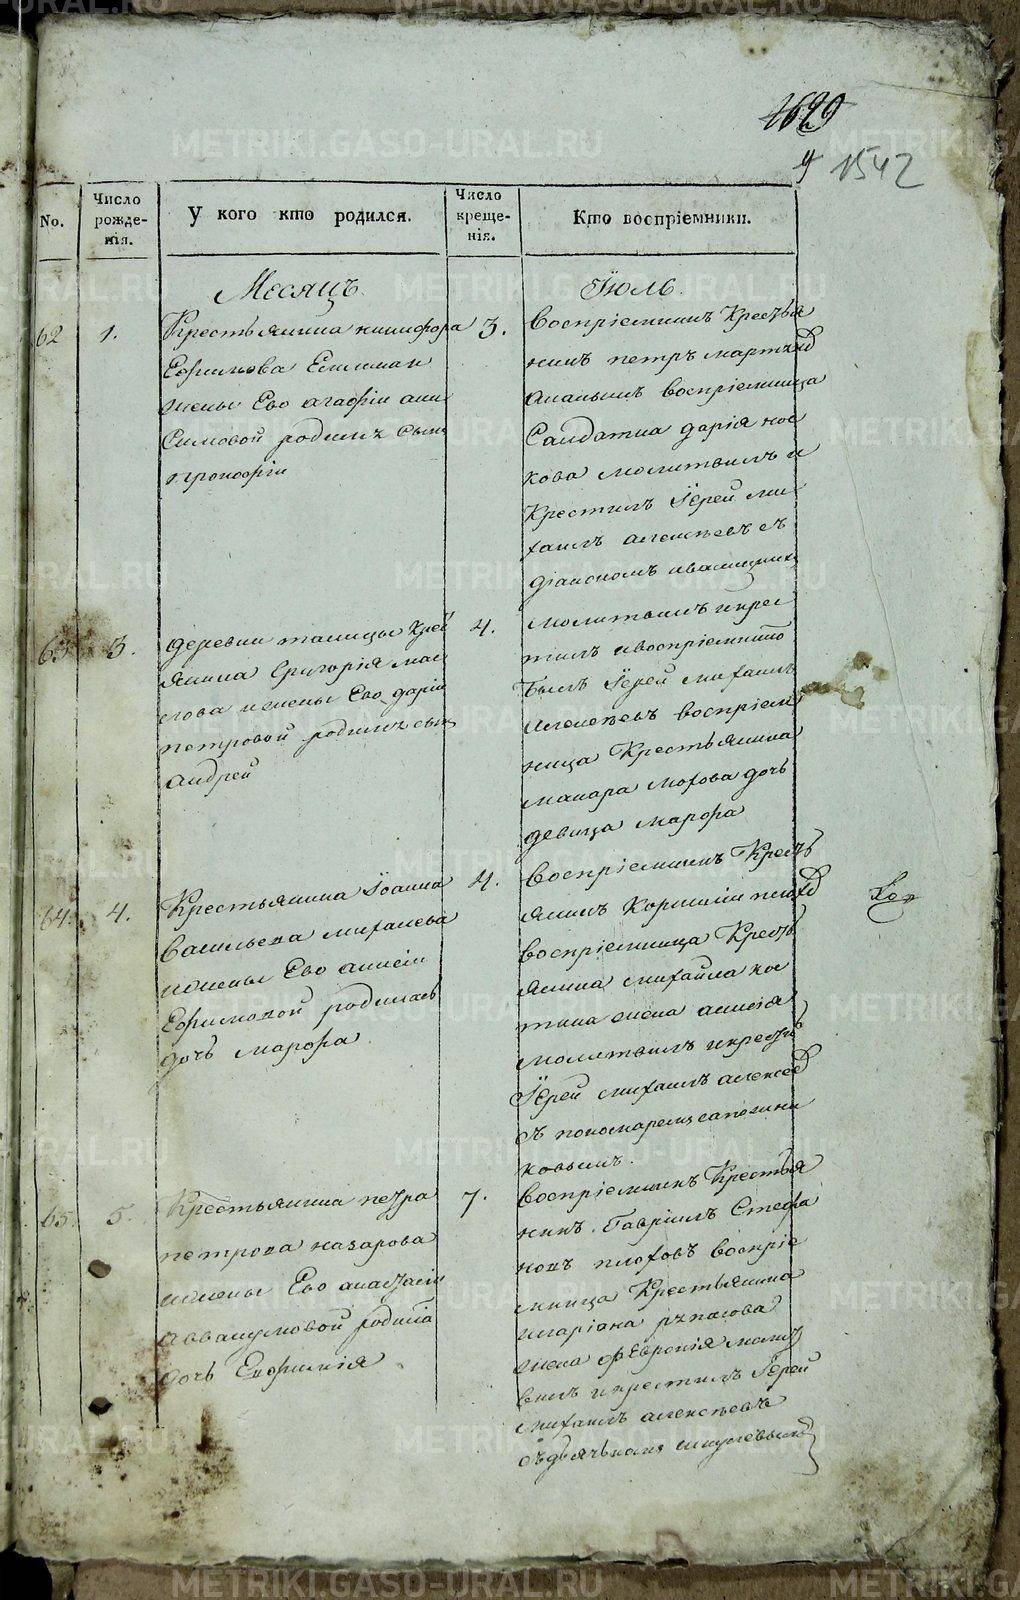 1629
9 1542
No.
Число рожде-нія.
У кого кто родился.
Число креще-нія.
Кто воспріемники.
Месяцъ
Іюль
62
1.
Крестьянина никифора
Ефимова
жены Ево агафіи ани
симовой родилъ сынъ
прокофіи
3.
воспріемникъ Крестья
нинъ петръ мартын
Ананьинъ воспріемница
Салдатка дарія нос
кова молитвилъ и
Крестилъ Іерей ми
хаилъ алексѣевъ съ
діакономъ
63
3.
деревни талицы Крес
янина Григорія мас
лова жены Ево даріи
петровой родилъ сынъ
андрей
4.
молитвилъ и крес
тилъ и воспріемнико
былъ Іерей михаилъ
алексѣевъ воспріем
ница Крестьянина
макара мохова дочь
девица марфа
64.
4.
Крестьянина Іоанна
Васильева михалева
жены Ево анисіи
Ефимовой родилась
дочь марфа
4.
воспріемникъ Кресть
янинъ Корнилій
воспріемница Кресть
янина михайла кос
тина жена анисія
молитвилъ и крести
Іерей михаилъ алексее
съ пономаремъ сапожни
ковымъ.
65.
5.
Крестьянина петра
петрова назарова
жены Ево анастасіи
аввакумовой родила
дочь Евфимія
7.
воспріемникъ Крестья
нинъ Гавріилъ Стефа
новъ плоховъ воспріе
мница Крестьянина
иларіона рѣпасова
жена февронія молит
вилъ и крестилъ Іерей
михаилъ алексѣевъ
съ дьячькомъ
METRIKI.GASO-URAL.RU